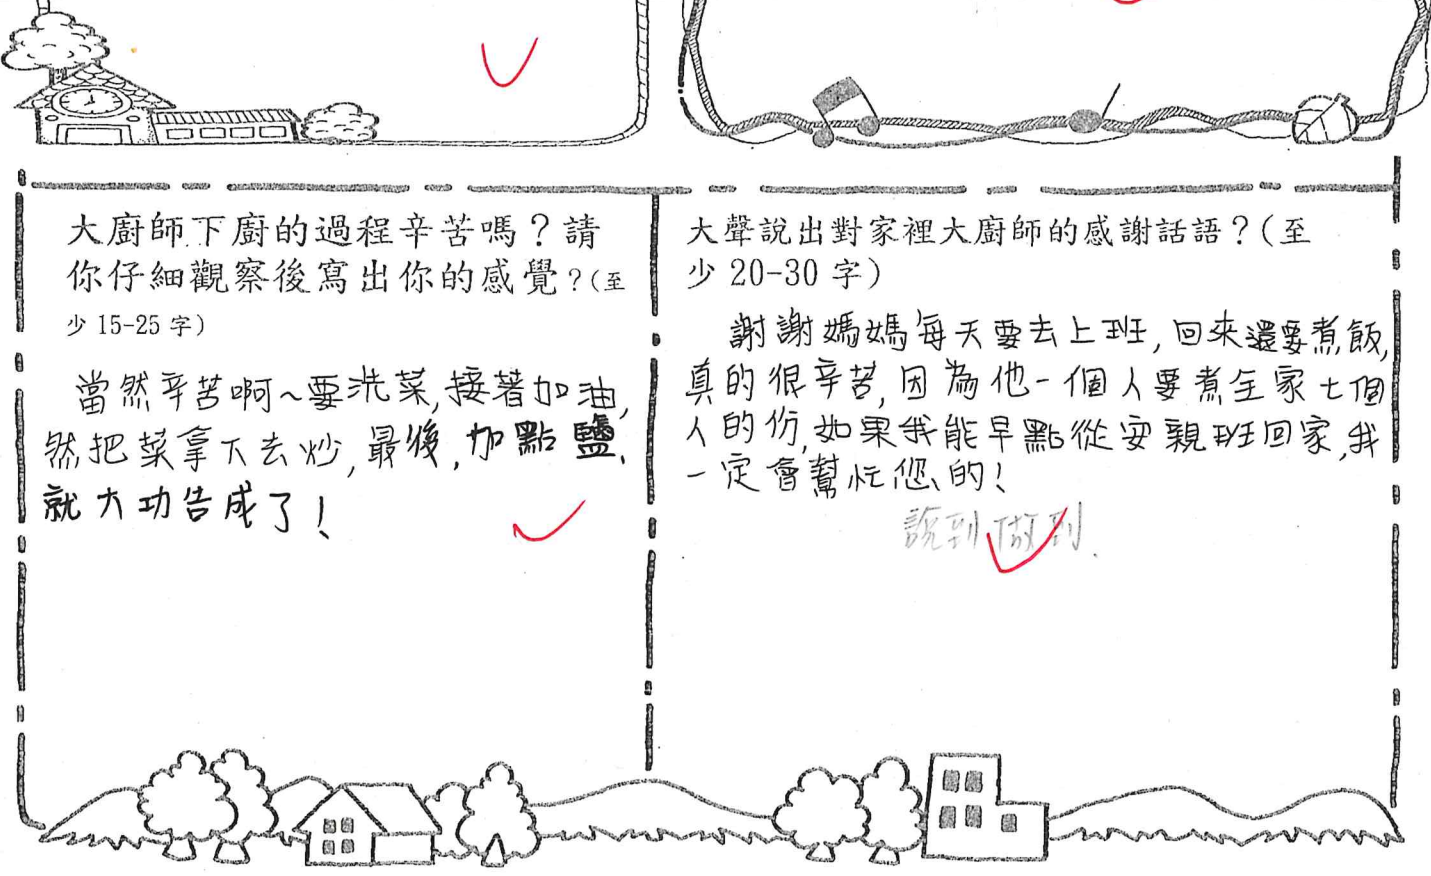 大廚師下廚的過程辛苦嗎？請
你仔細觀察後寫出你的感覺？(至
少 15-25 字)
當然辛苦啊~要洗菜,接著加油,
然把菜拿下去炒,最後,加點鹽,
就大功告成了!
大聲說出對家裡大廚師的感謝話語？(至
少 20-30 字)
謝謝媽媽每天要去上班,回來還要煮飯,
真的很辛苦,因為他一個人要煮全家七個
人的份,如果我能早點從安親班回家,我
一定會幫忙您的!
說到做到.